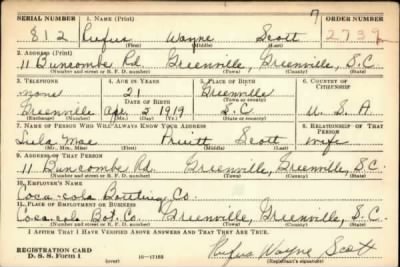 7
SERIAL NUMBER 1. NAME (Print) ORDER NUMBER
812 Rufus Wayne Scott 2739
(First) (Middle) (Last)
2. ADDRESS (Print)
11 Buncombe Rd. Greenville, Greenville, S.C.
(Number and street or R. F. D. number) (Town) (County) (State)
3. TELEPHONE 4. AGE IN YEARS 5. PLACE OF BIRTH 6. COUNTRY OF CITIZENSHIP
none 21 Greenville
DATE OF BIRTH (Town or county)
Greenville Apr. 1919 S.C. U.S.A
(Exchange) (Number) (Mo.) (Day) (Yr.) (State or country)
7. NAME OF PERSON WHO WILL ALWAYS KNOW YOUR ADDRESS 8. RELATIONSHIP OF THAT PERSON
Lula Mae Pruitt Scott Wife
(Mr., Mrs., Miss) (First) (Middle) (Last)
9. ADDRESS OF THAT PERSON
11 Buncombe Rd. Greenville, Greenville, S.C.
(Number and street or R. F. D. number) (Town) (County) (State)
10. EMPLOYER'S NAME
Coca-cola Bottling Co.
11. PLACE OF EMPLOYMENT OR BUSINESS
Coca-cola Bot. Co. Greenville, Greenville, S.C.
(Number and street or R. F. D. number) (Town) (County) (State)
I AFFIRM THAT I HAVE VERIFIED ABOVE ANSWERS AND THAT THEY ARE TRUE.
REGISTRATION CARD
D. S. S. Form 1 (over) 16—17105 Rufus Wayne Scott
(Registrant's signature)